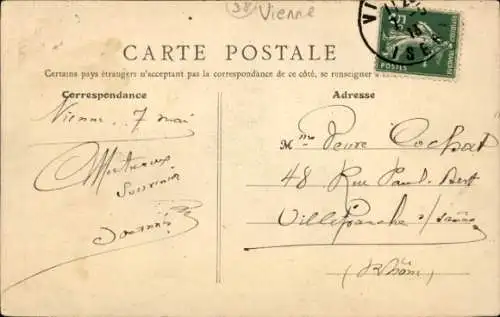 38 Vienne
CARTE POSTALE
Certains pays étrangers n'acceptant pas la correspondance de ce côté, se renseigner à
Correspondance
Adresse
Vienne. 7 mai
Affectueux
Souvenir
Mme Veuve Cochat
48 Rue Paul Bert
Villefranche s/ saône
(Rhône)
POSTES
ISÈRE